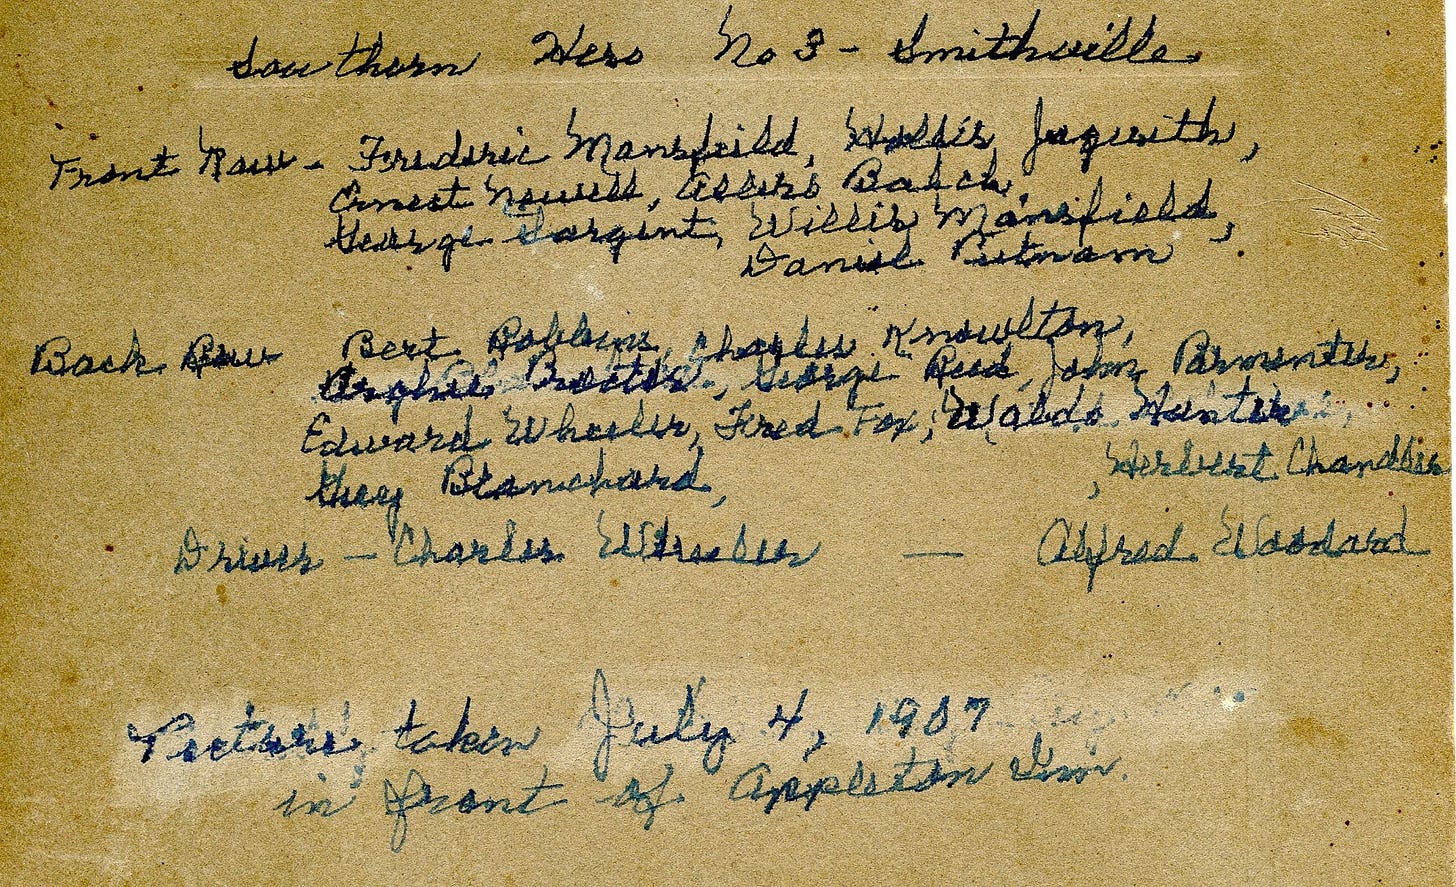 Southern Hero No 3 - Smithville
Front Row - Frederic Mansfeild, Hollis Jaquith,
Ernest Newell, Albert Balch,
George Sargent, Willis Mansfield,
Daniel Putnam
Back Row Bert Robbins, Charles Knowlton,
Proctor, George Reed, John Parmenter,
Edward Wheeler, Fred Fox, Waldo
Guy Blanchard, , Herbert Chandler
Driver - Charles Wheeler — Alfred Woodard
Picture taken July 4, 1907
in front of Appleton Inn.